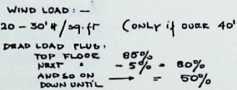 WIND LOAD: —
20 - 30' #/sq.ft (ONLY if OVER 40'
DEAD LOAD PLUS:
TOP FLOOR 85%
NEXT " - 5% = 80%
AND SO ON
DOWN UNTIL → = 50%